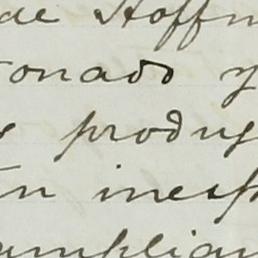 de Hoffm
ronado y
s produj
ón inesp
umplian